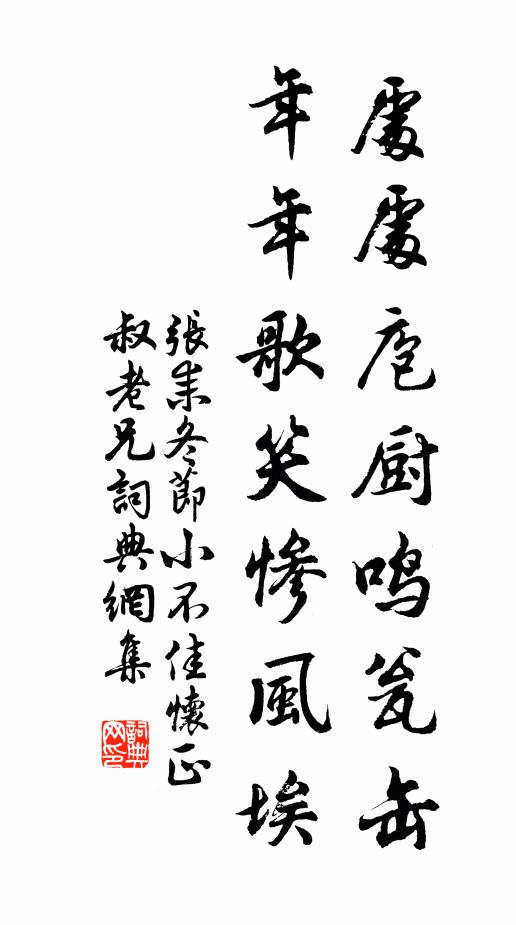 處處庖厨鳴瓮缶
年年歌笑慘風埃
張耒冬節小不佳懷正
叔老兄詞典網集
詞典网印